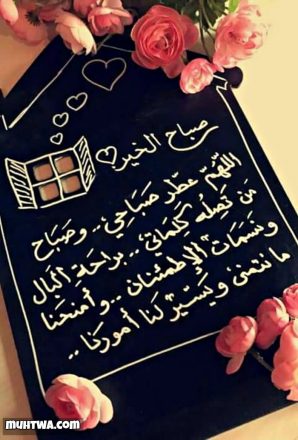 صباح الخير
اللهُمّ عطّر صَبَاحِي.. وصَباح
مَن تَصِلُه كَلِمَاتي.. براحَةِ البَال
ونسَمَات الإطمئنان.. وأمنحَنا
ما نتمنى ويَسّير لنا أمورنا..
MUHTWA.COM